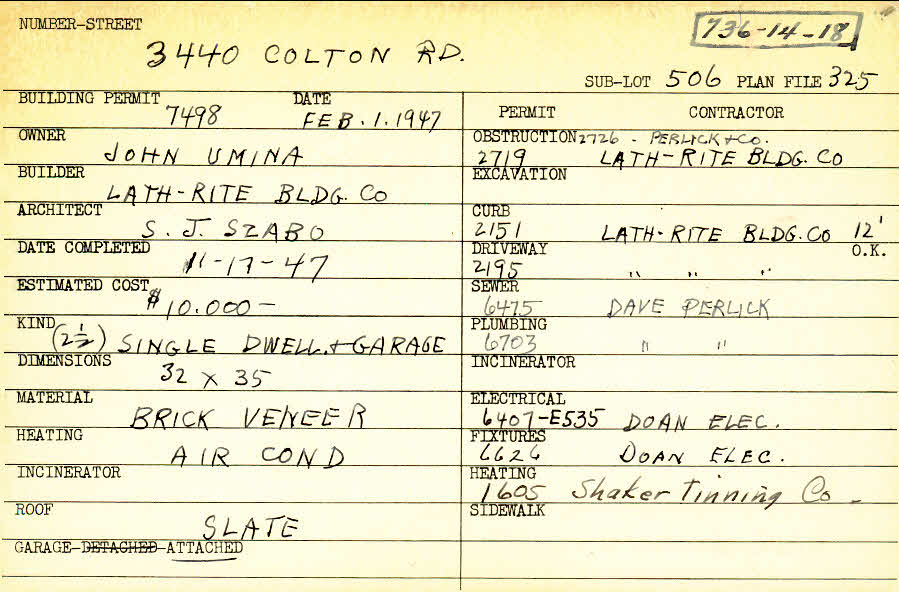 NUMBER-STREET
736-14-18
3440 COLTON RD.
SUB-LOT 506 PLAN FILE 325
BUILDING PERMIT DATE
7498 FEB. 1. 1947
OWNER
JOHN UMINA
BUILDER
LATH-RITE BLDG. CO
ARCHITECT
S. J. SZABO
DATE COMPLETED
11-17-47
ESTIMATED COST
$10.000-
KIND
(2 1/2) SINGLE DWELL. + GARAGE
DIMENSIONS
32 X 35
MATERIAL
BRICK VENEER
HEATING
AIR COND
INCINERATOR
ROOF
SLATE
GARAGE-DETACHED-ATTACHED
PERMIT CONTRACTOR
OBSTRUCTION 2726 - PERLICK + CO.
2719 LATH-RITE BLDG. CO
EXCAVATION
CURB
2151 LATH-RITE BLDG. CO 12'
DRIVEWAY O.K.
2195 " " "
SEWER
6475 DAVE PERLICK
PLUMBING
6703 " "
INCINERATOR
ELECTRICAL
6407-E535 DOAN ELEC.
FIXTURES
6626 DOAN ELEC.
HEATING
1605 Shaker Tinning Co -
SIDEWALK